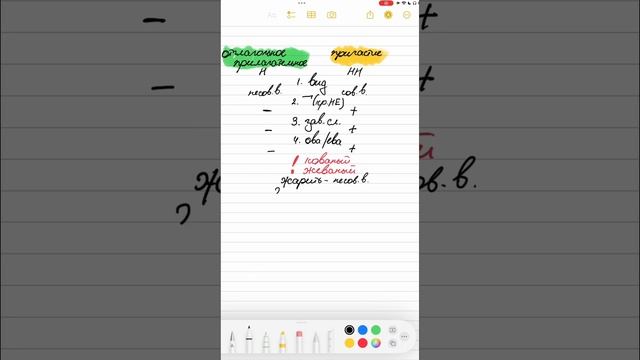 отглагольное прилагательное
причастие
Н
НН
1. вид
несов.в.
сов.в.
2. ¬ (кр.НЕ)
- +
3. зав.сл.
- +
4. ова/ева
- +
! кованый
жеваный
жарить - несов.в.